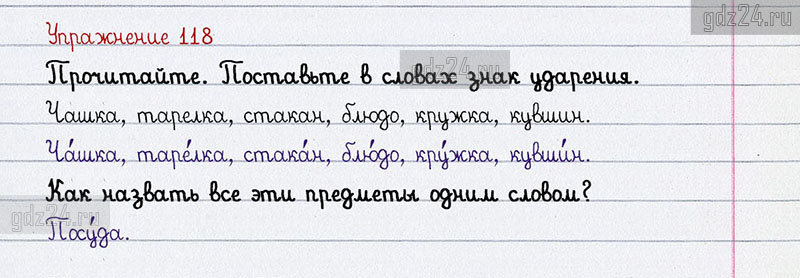 gdz24.ru
Упражнение 118
Прочитайте. Поставьте в словах знак ударения.
gdz24.ru
Чашка, тарелка, стакан, блюдо, кружка, кувшин.
Ча́шка, таре́лка, стака́н, блю́до, кру́жка, кувши́н.
Как назвать все эти предметы одним словом?
gdz24.ru
Посу́да.